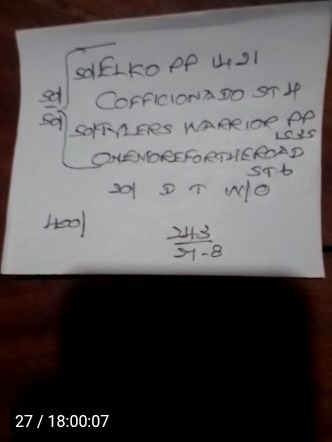 sd/ ELKO PP 1421
sd/ COFFICIONADO ST 4
sd/ sd/ TYLERS WARRIOR PP 1525
ONEMOREFORTHEROAD
ST 6
20/ D T W/O
400/
243
57-8
27 / 18:00:07